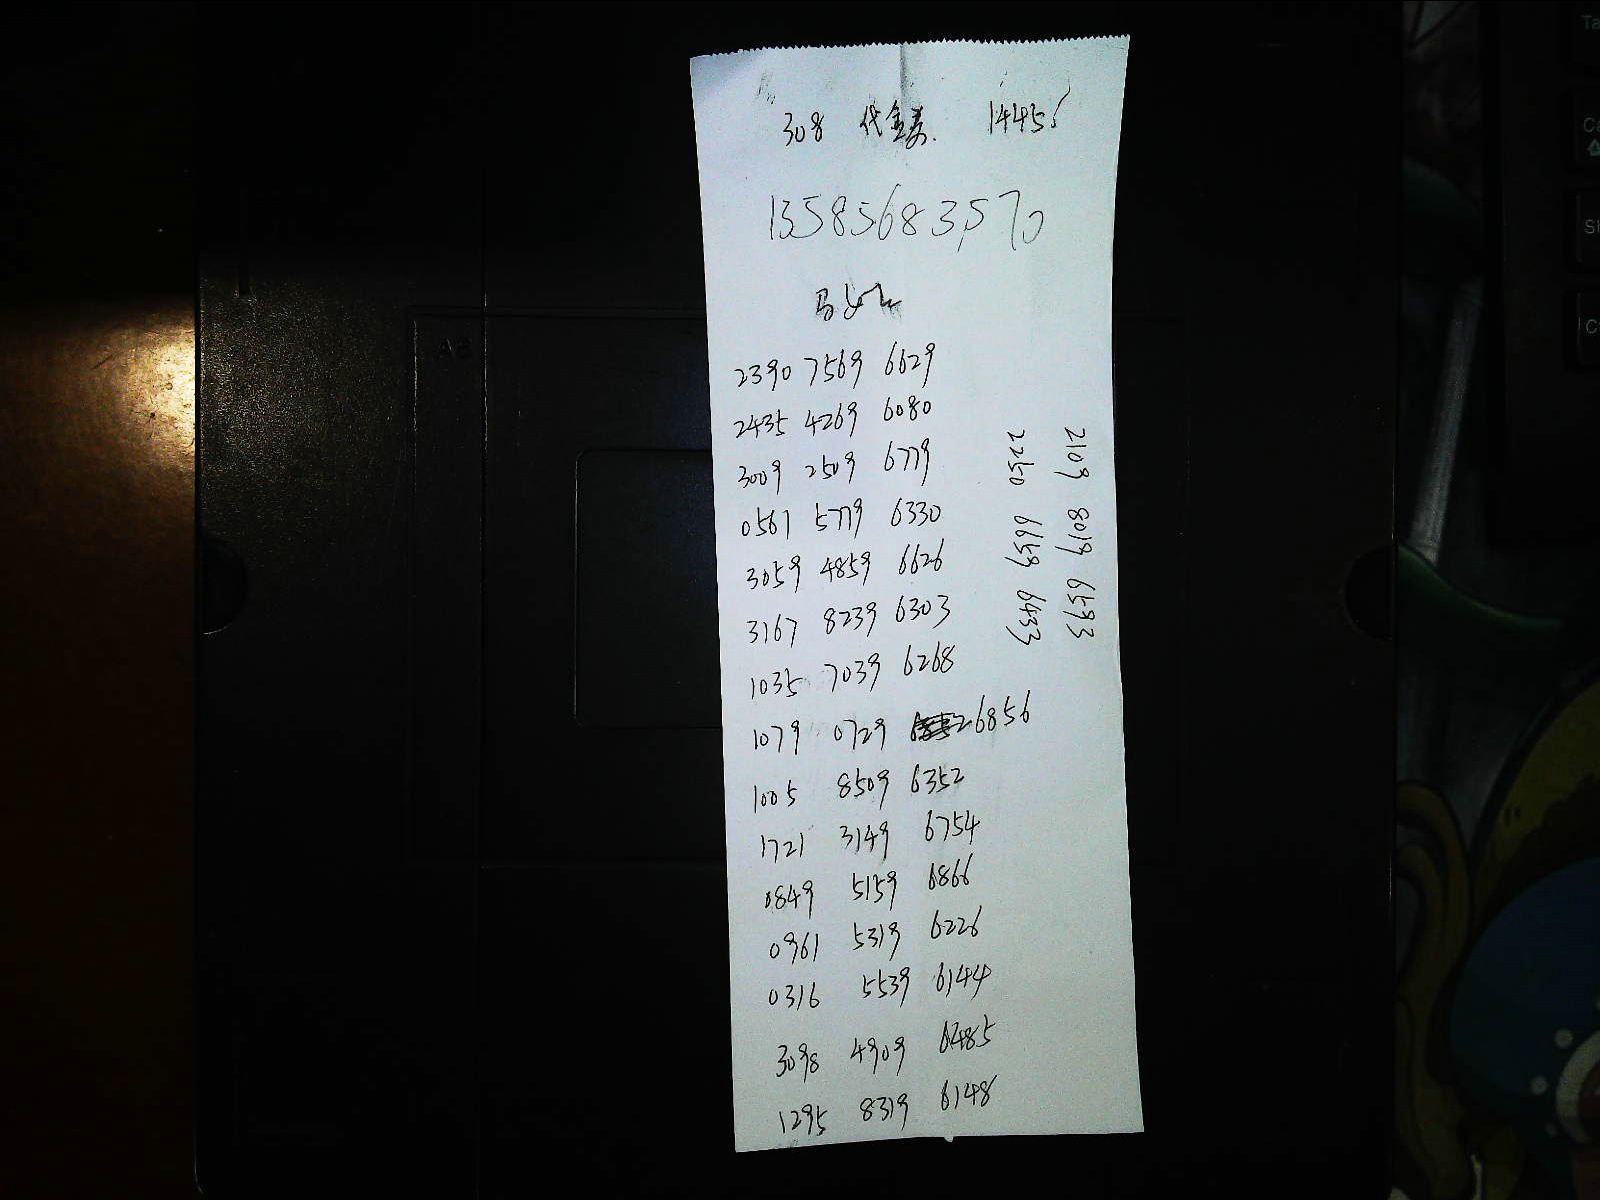 308 代金券 1445
13585683570
马
2390 7569 6629
2435 4269 6080
3009 2509 6779
0561 5779 6330
3059 4859 6626
3167 8239 6303
1035 7039 6268
1079 0729 26856
1005 8509 6352
1721 3149 6754
0849 5159 6866
0961 5319 6226
0316 5539 6144
3098 4909 6485
1295 8319 6148
2109 8019 6593
2250 6659 6433